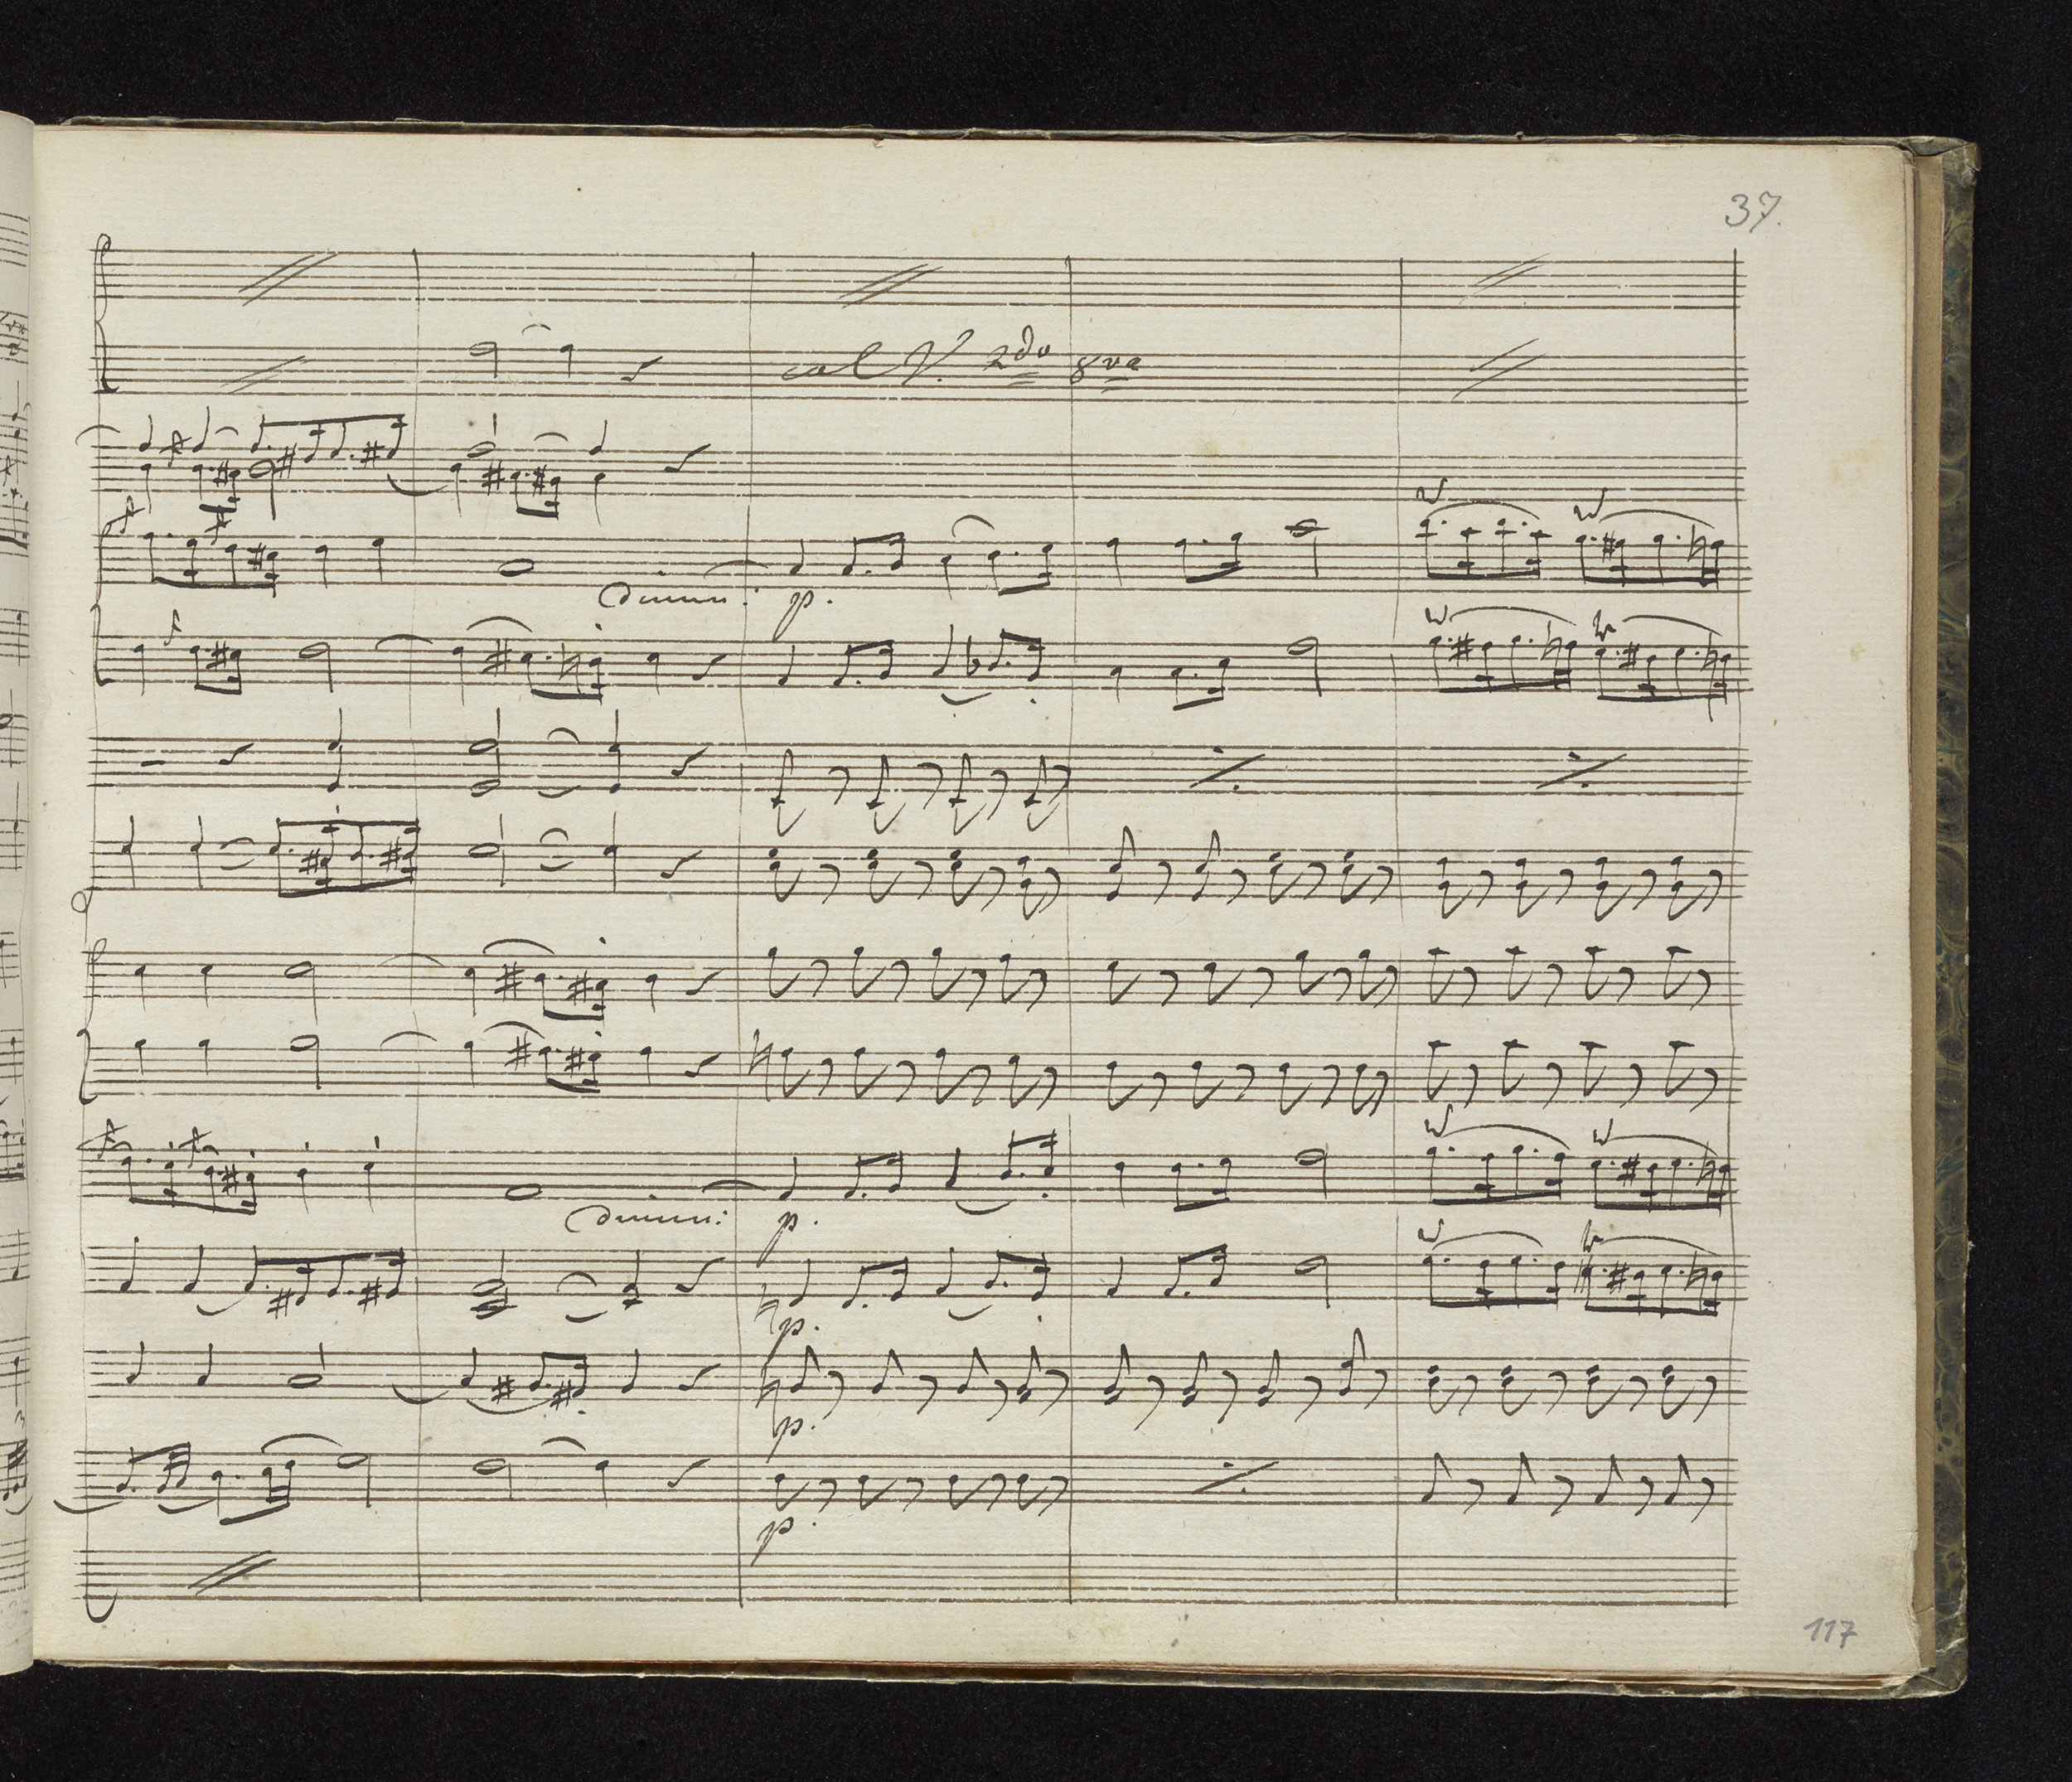 37.
col V. 2do 8va
dimin: p.
dimin: p.
p.
p.
p.
117